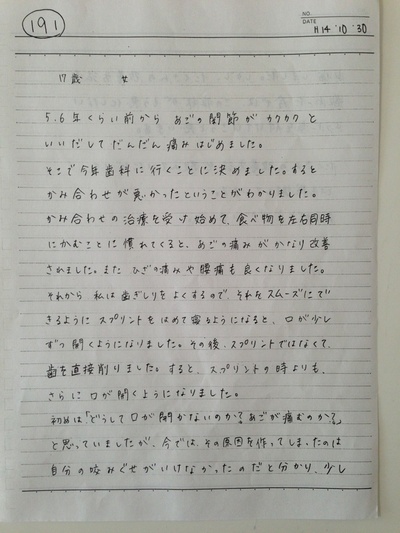 191
NO.
DATE
H14・10・30
17歳 女
5.6年くらい前から あごの関節が カクカク と
いいだして だんだん 痛み はじめました。
そこで 今年 歯科 に 行くことに 決めました。すると
かみ合わせが 悪かったということが わかりました。
かみ合わせの 治療を 受け 始めて、食べ物を左右同時
にかむことに 慣れてくると、あごの痛みが かなり 改善
されました。また ひざの痛みや 腰痛も 良くなりました。
それから 私は 歯ぎしりを よくするので、それをスムーズにで
きるように スプリントを はめて 寝るようになると、口が少し
ずつ 開くようになりました。その後、スプリントではなくて、
歯を直接削りました。すると、スプリントの時よりも、
さらに 口が 開くようになりました。
初めは「どうして口が開かないのか?あごが痛むのか?」
と思っていましたが、今では、その原因を作ってしまったのは
自分の咬みぐせがいけなかったのだと分かり、少し